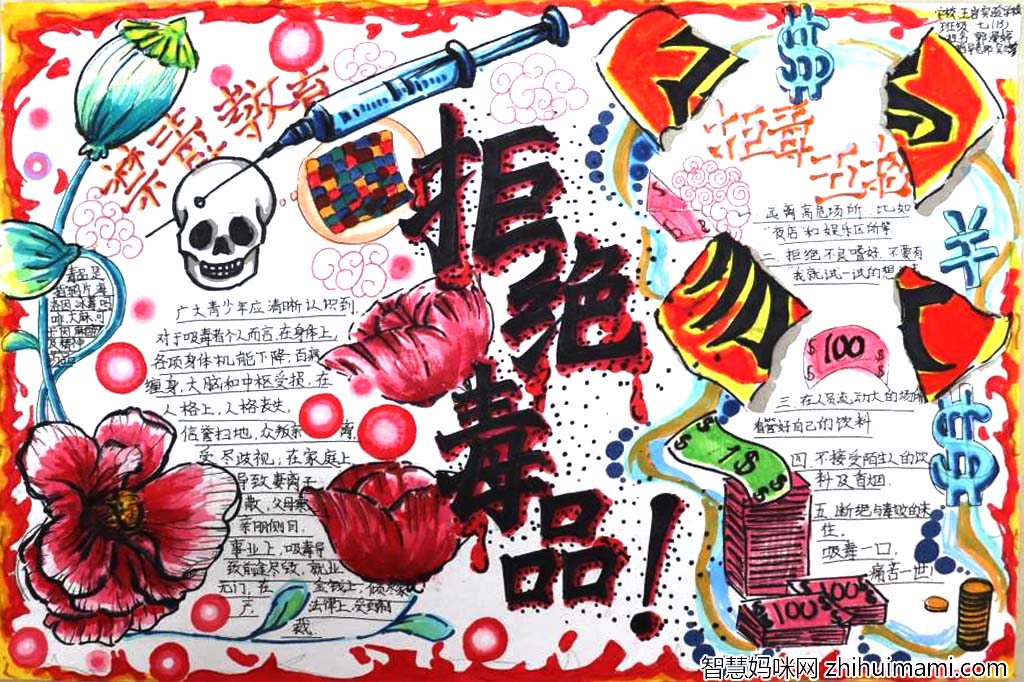 学校:王岩实验学校
班级 七(13)
禁毒教育
拒绝毒品!
毒品是
指鸦片,海
洛因,冰毒,吗
啡,大麻,可
广大青少年应清晰认识到.
对于吸毒者个人而言,在身体上,
各项身体机能下降,百病
缠身,大脑和中枢受损,在
人格上,人格丧失,
信誉扫地,众叛亲离,
受尽歧视;在家庭上
导致妻离子
散,父母
亲朋侧目.
事业上,吸毒导
致前途尽毁,就业
无门,在金钱上,倾尽家
产,法律上,受到制
裁.
拒毒
远离高危场所.比如
"夜店"和娱乐区所等
二、拒绝不良嗜好.不要有
"我就试一试"的想
100
三、在人员流动大的场所
看管好自己的饮料
四、不接受陌生人的饮
料及香烟.
五、断绝与毒贩的来
往.
吸毒一口,
痛苦一世!
$1$
100
100
智慧妈咪网 zhihuimami.com